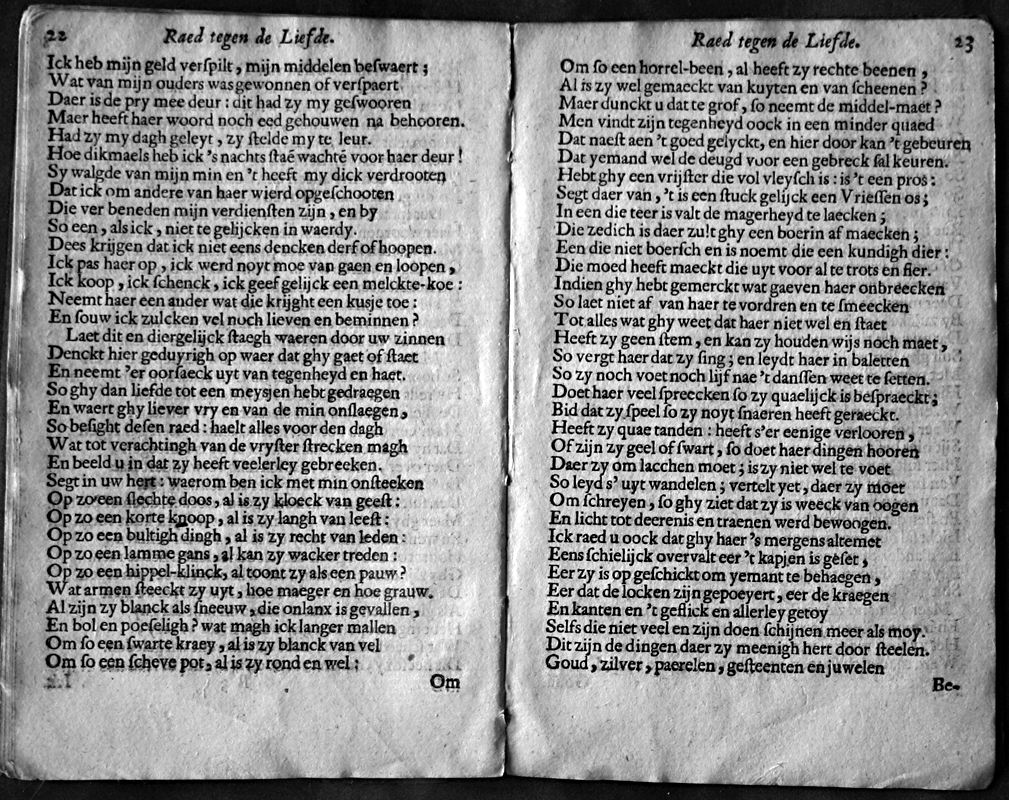 22
Raed tegen de Liefde.
Ick heb mijn geld verſpilt, mijn middelen beſwaert;
Wat van mijn ouders was gewonnen of verſpaert
Daer is de pry mee deur: dit had zy my geſwooren
Maer heeft haer woord noch eed gehouwen na behooren.
Had zy my dagh geleyt, zy ſtelde my te leur.
Hoe dikmaels heb ick 's nachts ſtaē wachtē voor haer deur!
Sy walgde van mijn min en 't heeft my dick verdrooten
Dat ick om andere van haer wierd opgeſchooten
Die ver beneden mijn verdienſten zijn, en by
So een, als ick, niet te gelijcken in waerdy.
Dees krijgen dat ick niet eens dencken derf of hoopen.
Ick pas haer op, ick werd noyt moe van gaen en loopen,
Ick koop, ick ſchenck, ick geef gelijck een melckte-koe:
Neemt haer een ander wat die krijght een kusje toe:
En ſouw ick zulcken vel noch lieven en beminnen?
Laet dit en diergelijck ſtaegh waeren door uw zinnen
Denckt hier geduyrigh op waer dat ghy gaet of ſtaet
En neemt 'er oorſaeck uyt van tegenheyd en haet.
So ghy dan liefde tot een meysjen hebt gedraegen
En waert ghy liever vry en van de min onſlaegen,
So beſight deſen raed: haelt alles voor den dagh
Wat tot verachtingh van de vryſter ſtrecken magh
En beeld u in dat zy heeft veelerley gebreeken.
Segt in uw hert: waerom ben ick met min onſteeken
Op zo een ſlechte doos, al is zy kloeck van geeſt:
Op zo een korte knoop, al is zy langh van leeſt:
Op zo een bultigh dingh, al is zy recht van leden:
Op zo een lamme gans, al kan zy wacker treden:
Op zo een hippel-klinck, al toont zy als een pauw?
Wat armen ſteeckt zy uyt, hoe maeger en hoe grauw.
Al zijn zy blanck als ſneeuw, die onlanx is gevallen,
En bol en poeſeligh? wat magh ick langer mallen
Om ſo een ſwarte kraey, al is zy blanck van vel
Om ſo een ſcheve pot, al is zy rond en wel:
Om
Raed tegen de Liefde.
23
Om ſo een horrel-been, al heeft zy rechte beenen,
Al is zy wel gemaeckt van kuyten en van ſcheenen?
Maer dunckt u dat te grof, ſo neemt de middel-maet?
Men vindt zijn tegenheyd oock in een minder quaed
Dat naeſt aen 't goed gelyckt, en hier door kan 't gebeuren
Dat yemand wel de deugd voor een gebreck ſal keuren.
Hebt ghy een vrijſter die vol vleyſch is: is 't een pros:
Segt daer van, 't is een ſtuck gelijck een Vrieſſen os;
In een die teer is valt de magerheyd te laecken;
Die zedich is daer zult ghy een boerin af maecken;
Een die niet boerſch en is noemt die een kundigh dier:
Die moed heeft maeckt die uyt voor al te trots en fier.
Indien ghy hebt gemerckt wat gaeven haer onbreecken
So laet niet af van haer te vordren en te ſmeecken
Tot alles wat ghy weet dat haer niet wel en ſtaet
Heeft zy geen ſtem, en kan zy houden wijs noch maet,
So vergt haer dat zy ſing; en leydt haer in baletten
So zy noch voet noch lijf nae 't danſſen weet te ſetten.
Doet haer veel ſpreecken ſo zy quaelijck is beſpraeckt;
Bid dat zy ſpeel ſo zy noyt ſnaeren heeft geraeckt.
Heeft zy quae tanden: heeft s'er eenige verlooren,
Of zijn zy geel of ſwart, ſo doet haer dingen hooren
Daer zy om lacchen moet; is zy niet wel te voet
So leyd s' uyt wandelen; vertelt yet, daer zy moet
Om ſchreyen, ſo ghy ziet dat zy is weeck van oogen
En licht tot deerenis en traenen werd bewoogen.
Ick raed u oock dat ghy haer 's mergens altemet
Eens ſchielijck overvalt eer 't kapjen is geſet,
Eer zy is op geſchickt om yemant te behaegen,
Eer dat de locken zijn gepoeyert, eer de kraegen
En kanten en 't geſlick en allerley getoy
Selfs die niet veel en zijn doen ſchijnen meer als moy.
Dit zijn de dingen daer zy meenigh hert door ſteelen.
Goud, zilver, paerelen, geſteenten en juwelen
Be-